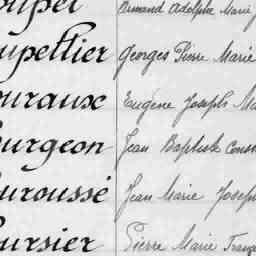 oupel Armand Adolphe Marie
upellier Georges Pierre Marie
ouraux Eugène Joseph Ma
ourgeon Jean Baptiste Const
uroussé Jean Marie Joseph
oursier Pierre Marie Franç